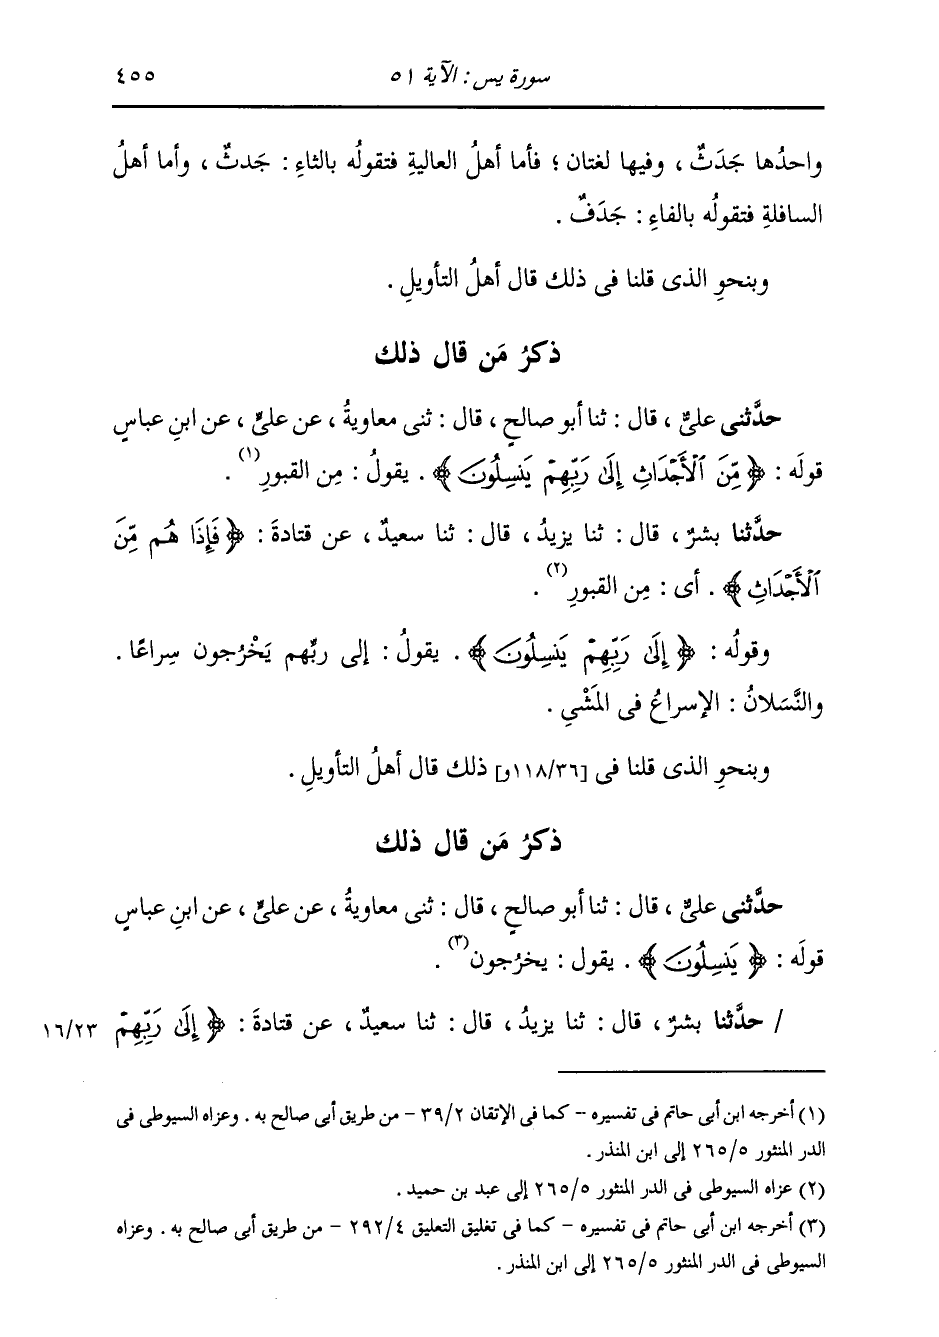 سورة يس : الآية ٥١
٤٥٥
واحدُها جَدَثٌ ، وفيها لغتان ؛ فأما أهلُ العاليةِ فتقولُه بالثاءِ : جَدثٌ ، وأما أهلُ
السافلةِ فتقولُه بالفاءِ : جَدَفٌ .
وبنحوِ الذى قلنا فى ذلك قال أهلُ التأويلِ .
ذكرُ مَن قال ذلك
حدَّثنى علىٌّ ، قال : ثنا أبو صالحٍ ، قال : ثنى معاويةُ ، عن علىٍّ ، عن ابنِ عباسٍ
قولَه : ﴿ مِّنَ ٱلْأَجْدَاثِ إِلَىٰ رَبِّهِمْ يَنسِلُونَ ﴾ . يقولُ : مِن القبورِ(١) .
حدَّثنا بشرٌ ، قال : ثنا يزيدُ ، قال : ثنا سعيدٌ ، عن قتادةَ : ﴿ فَإِذَا هُم مِّنَ
ٱلْأَجْدَاثِ ﴾ . أى : مِن القبورِ(٢) .
وقولُه : ﴿ إِلَىٰ رَبِّهِمْ يَنسِلُونَ ﴾ . يقولُ : إلى ربِّهم يَخْرُجون سِراعًا .
والنَّسَلانُ : الإسراعُ فى المَشْىِ .
وبنحوِ الذى قلنا فى [١١٨/٣٦و] ذلك قال أهلُ التأويلِ .
ذكرُ مَن قال ذلك
حدَّثنى علىٌّ ، قال : ثنا أبو صالحٍ ، قال : ثنى معاويةُ ، عن علىٍّ ، عن ابنِ عباسٍ
قولَه : ﴿ يَنسِلُونَ ﴾ . يقول : يخرُجون(٣) .
/ حدَّثنا بشرٌ ، قال : ثنا يزيدُ ، قال : ثنا سعيدٌ ، عن قتادةَ : ﴿ إِلَىٰ رَبِّهِمْ ١٦/٢٣
(١) أخرجه ابن أبى حاتم فى تفسيره - كما فى الإتقان ٣٩/٢ - من طريق أبى صالح به . وعزاه السيوطى فى
الدر المنثور ٢٦٥/٥ إلى ابن المنذر .
(٢) عزاه السيوطى فى الدر المنثور ٢٦٥/٥ إلى عبد بن حميد .
(٣) أخرجه ابن أبى حاتم فى تفسيره - كما فى تغليق التعليق ٢٩٢/٤ - من طريق أبى صالح به . وعزاه
السيوطى فى الدر المنثور ٢٦٥/٥ إلى ابن المنذر .